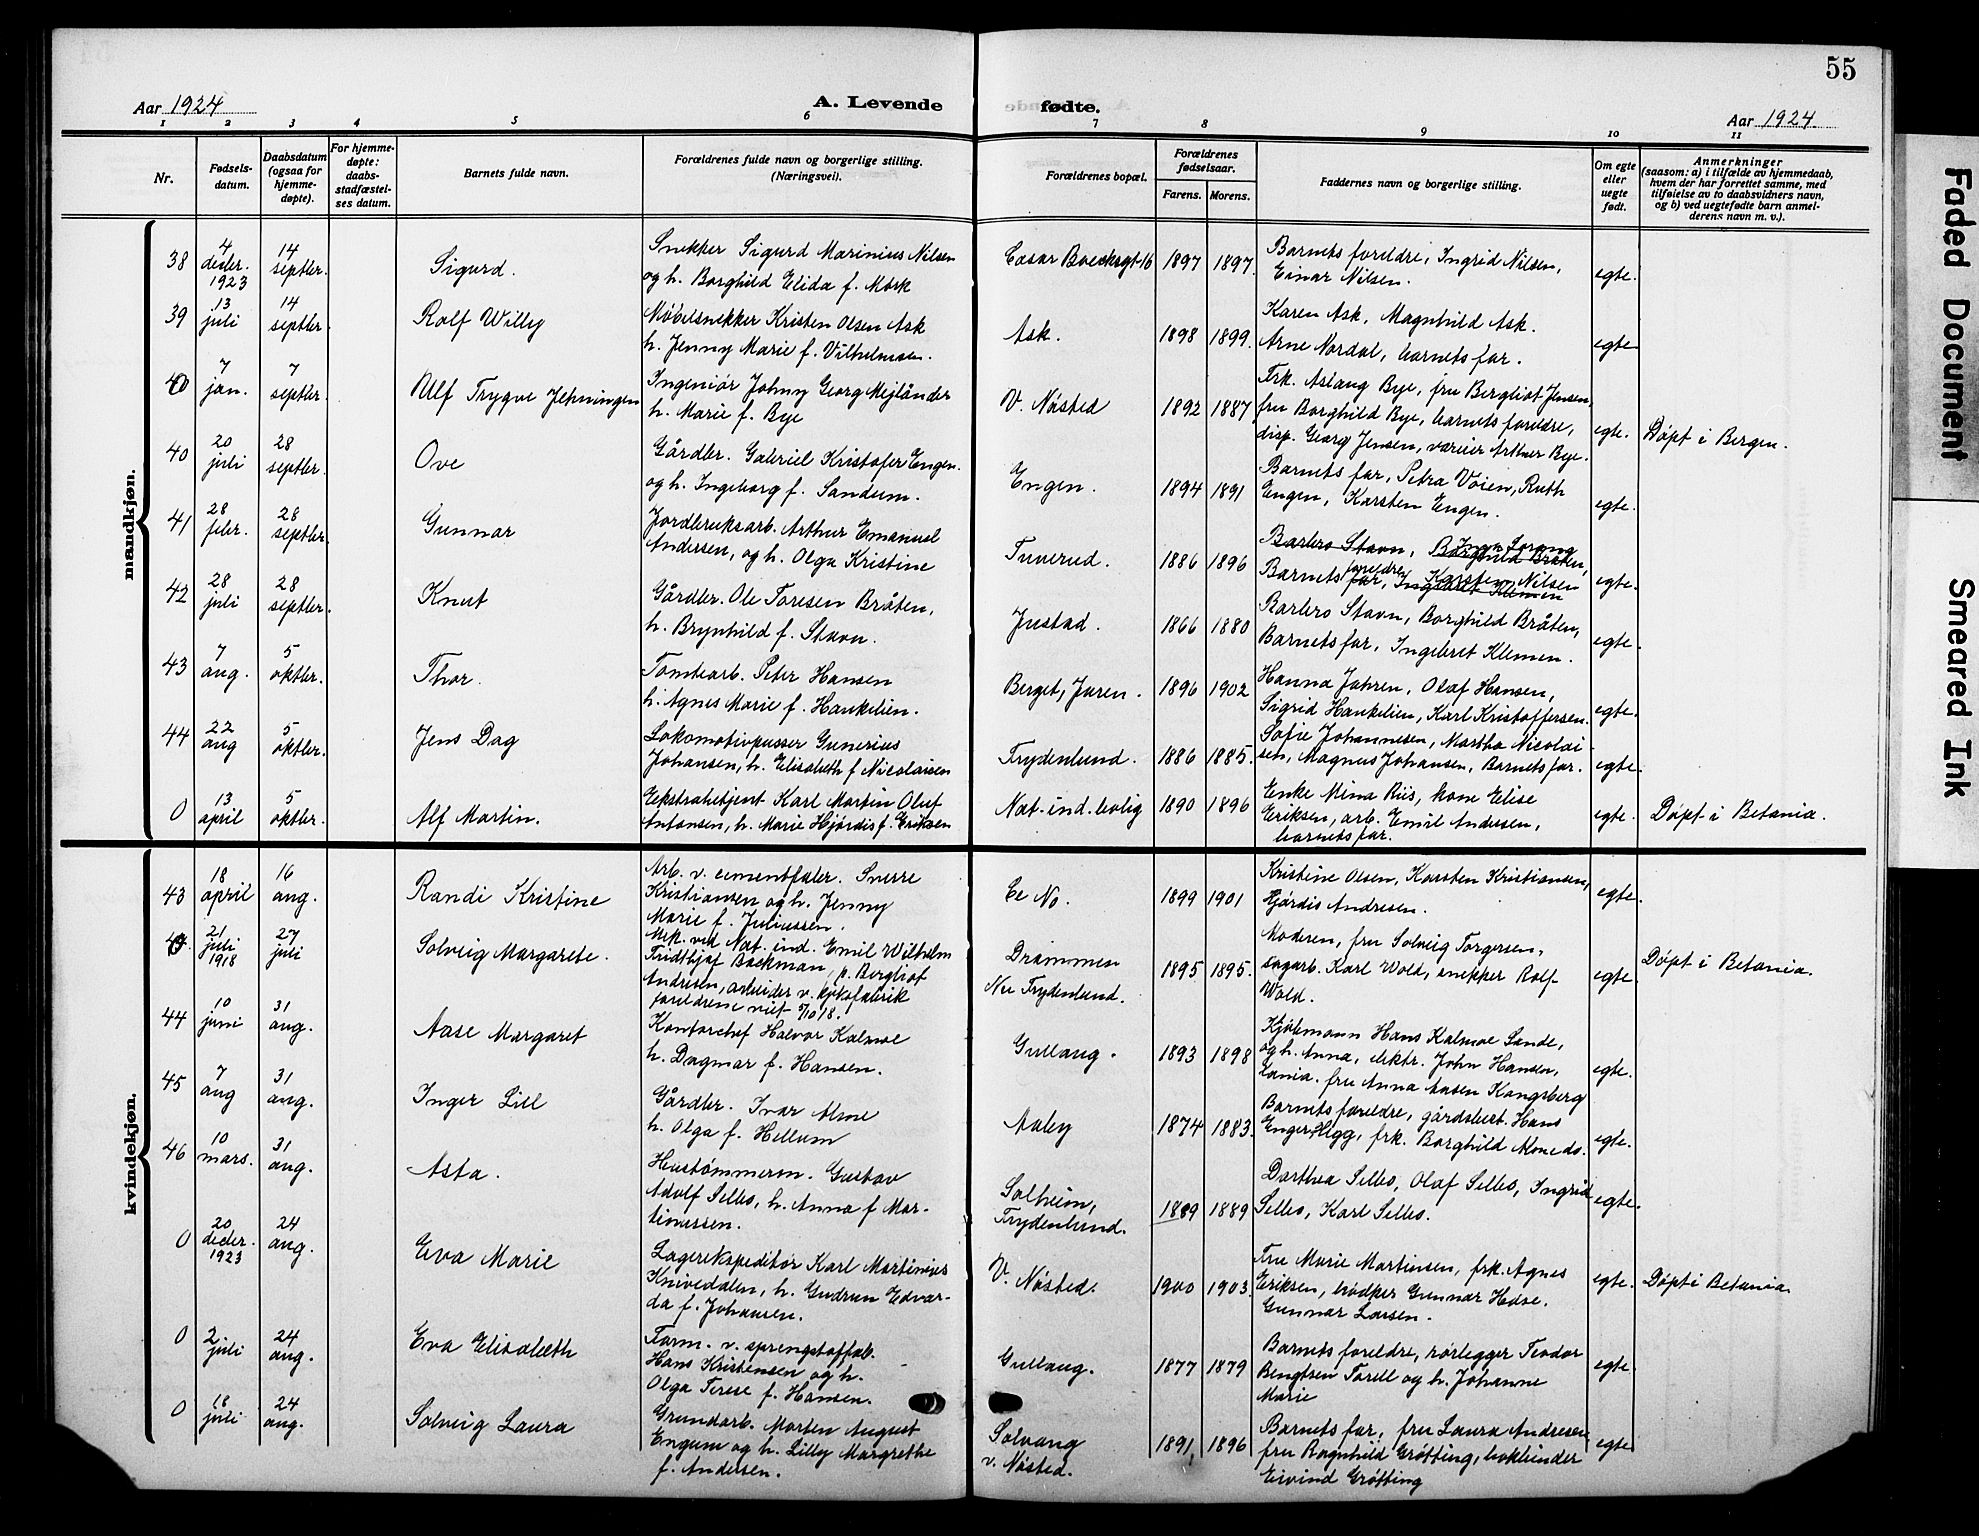 55
Aar 1924 A. Levende fødte. Aar 1924.
1 2 3 4 5 6 7 8 9 10 11
Nr. Fødsels-datum. Daabsdatum (ogsaa for hjemme-døpte). For hjemme-døpte: daabs-stadfæstel-ses datum. Barnets fulde navn. Forældrenes fulde navn og borgerlige stilling. (Næringsvei). Forældrenes bopæl. Forældrenes fødselsaar. Farens. Morens. Faddernes navn og borgerlige stilling. Om egte eller uegte født. Anmerkninger (saasom: a) i tilfælde av hjemmedaab, hvem der har forrettet samme, med tilføielse av to daabsvidners navn, og b) ved uegtefødte barn anmel-derens navn m. v.).
mandkjøn.
38 4 decbr. 1923 14 septbr. Sigurd. Snekker Sigurd Marinius Nilsen
og h. Borghild Elida f. Mørk Cæsar Boecksgt 16 1897 1897. Barnets foreldre, Ingrid Nilsen,
Einar Nilsen. egte.
39 13 juli 14 septbr. Rolf Willy Møbelsnekker Kristen Olsen Ask
h. Jenny Marie f. Vilhelmsen. Ask. 1898 1899. Karen Ask, Magnhild Ask.
Arne Nordal, barnets far. egte
0 7 jan. 7 septbr. Ulf Trygve Ingeniør Johny Georg Mejlånder
h. Marie f. Bye V. Nøsted 1892 1887 Frk. Aslaug Bye, fru Bergliot Jensen,
fru Borghild Bye, barnets foreldre,
disp. Georg Jensen, Arthur Bye. egte. Døpt i Bergen.
40 20 juli 28 septbr. Ove Gårdbr. Gabriel Kristofer Engen.
og h. Ingeborg f. Sandum. Engen. 1894 1891 Barnets far, Petra Voien, Ruth
Engen, Karsten Engen. egte.
41 28 febr. 28 septbr. Gunnar Jordbruksarb. Arthur Emanuel
Andersen, og h. Olga Kristine Tuverud. 1886 1896 Barbro Stavn, Borghild Bråten,
Barnets foreldre, Karsten Nilsen
far, Ingebret Klemen egte.
42 28 juli 28 septbr. Knut Gårdbr. Ole Toresen Bråten,
h. Brynhild f. Stavn. Justad. 1866 1880 Barbro Stavn, Borghild Bråten,
Barnets far, Ingebret Klemen. egte.
43 7 aug. 5 oktbr. Thor. Tomtearb. Peter Hansen
h. Agnes Marie f. Hankelien. Berget, Juren. 1896 1902 Hanna Jahren, Olaf Hansen,
Sigrid Hankelien, Karl Kristoffersen. egte.
44 22 aug 5 oktbr. Jens Dag Lokomotivpusser Gunerius
Johansen, h. Elisabeth f Nicolaisen Frydenlund. 1886 1885. Sofie Johannesen, Martha Nicolai-
sen, Magnus Johansen, Barnets far. egte.
0 13 april 5 oktbr. Alf Martin. Ekstrabetjent Karl Martin Oluf
Antonsen, h. Marie Hjørdis f. Eriksen Nat. ind. bolig 1890 1896 Enke Mina Riis, kone Elise
Eriksen, arb. Emil Andersen,
barnets far. egte. Døpt i Betania.
kvindekjøn.
43 18 april 16 aug. Randi Kristine Arb. v. cementfabr. Snerre
Kristiansen og h. Jenny
Marie f. Juliussen. Ee No. 1899 1901 Kristine Olsen, Karsten Kristiansen,
Hjørdis Andresen. egte.
0 21 juli 1918 27 juli Solveig Margarete. Mek. ved Nat. ind. Emil Wilhelm
Fridthjof Backman, p. Bergliot
Andresen, arbeider v. kjeksfabrik
foreldrene viet 18. Drammen
Nu Frydenlund. 1895 1895. Moderen, fru Solveig Torgersen,
sagarb. Karl Wold, snekker Rolf
Wold. egte. Døpt i Betania.
44 10 juni 31 aug. Aase Margaret Kontorchef Halvor Kalmoe
h. Dagmar f. Hansen. Gullaug. 1893 1898 Kjøbmann Hans Kalmoe Sande,
og h. Anna, elektr. John Hansen,
fru Anna Aasen Kongsberg egte.
45 7 aug 31 aug. Inger Lill Gårdbr. Ivar Alme
h. Olga f. Hellum Aaby 1874 1883. Barnets foreldre, gårdsbest. Hans
Enger, frk. Borghild Alme do. egte.
46 10 mars. 31 aug. Asta. Hustømmerm. Gustav
Adolf Sillebo, h. Anna f Mar-
tinussen. Solheim,
Frydenlund. 1889 1889 Dorthea Sillebo, Olaf Sillebo, Ingrid
Sillebo, Karl Sillebo. egte.
0 20 decbr. 1923 24 aug. Eva Marie Lagerekspeditør Karl Martinius
Kniveddalen, h. Gudrun Edvar-
da f. Johansen. V. Nøsted. 1900 1903. Fru Marie Martinsen, frk. Agnes
Eriksen, bødker Gunnar Hose.
Gunnar Larsen. egte. Døpt i Betania
0 2 juli 24 aug. Eva Elisabeth Form. v. sprengstoffab.
Hans Kristensen og h.
Olga Terese f. Hansen. Gullaug. 1877 1879 Barnets foreldre, rørlegger Teodor
Bengtsen Torell og h. Johanne
Marie egte.
0 18 juli 24 aug. Solveig Laura Grundarb. Morten August
Engum og h. Lilly Margrethe
f. Andersen. Solvang
v. Nøsted. 1891, 1896 Barnets far, fru Laura Andresen
fru Ragnhild Grøtting, bokbinder
Eivind Grøtting egte
Faded Document
Smeared Ink